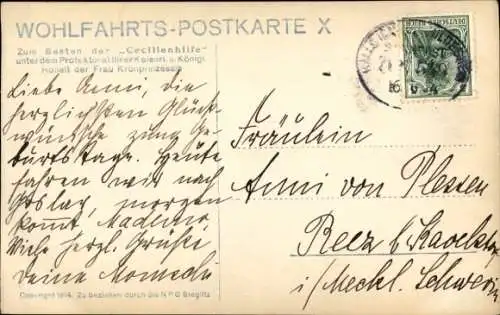 WOHLFAHRTS-POSTKARTE X
Zum Besten der „Cecilienhilfe"
unter dem Protektorat Ihrer Kaiserl. u. Königl.
Hoheit der Frau Kronprinzessin
Liebe Anni, die
herzlichsten Glück-
wünsche zum Ge-
burtstage. Heute
fahren wir nach
Goslar, morgen
kommt
Viele herzl. Grüße
Deine
Copyright 1914. Zu beziehen durch die NPG Steglitz
DEUTSCHES REICH
Fräulein
Anni von Plessen
Reez b/
i/Meckl. Schwerin